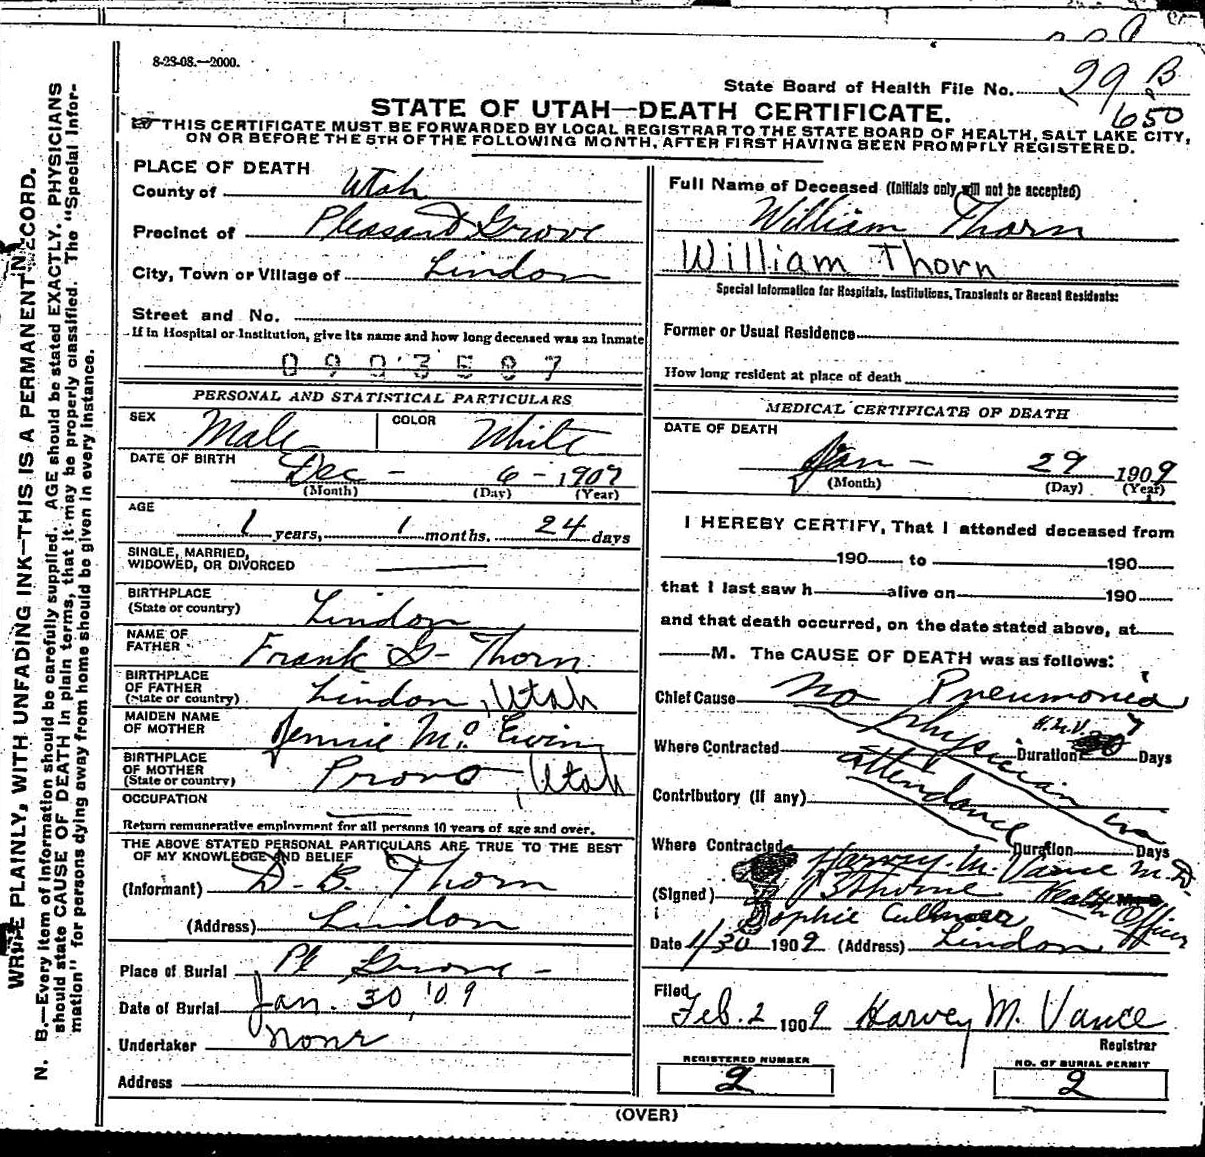 8-23-08.—2000.
State Board of Health File No. 29 B
650
STATE OF UTAH—DEATH CERTIFICATE.
THIS CERTIFICATE MUST BE FORWARDED BY LOCAL REGISTRAR TO THE STATE BOARD OF HEALTH, SALT LAKE CITY,
ON OR BEFORE THE 5TH OF THE FOLLOWING MONTH, AFTER FIRST HAVING BEEN PROMPTLY REGISTERED.
WRITE PLAINLY, WITH UNFADING INK—THIS IS A PERMANENT RECORD.
N. B.—Every item of information should be carefully supplied. AGE should be stated EXACTLY. PHYSICIANS
should state CAUSE OF DEATH in plain terms, that it may be properly classified. The "Special Infor-
mation" for persons dying away from home should be given in every instance.
PLACE OF DEATH
County of Utah
Precinct of Pleasant Grove
City, Town or Village of Lindon
Street and No.
If in Hospital or Institution, give its name and how long deceased was an Inmate
0903587
PERSONAL AND STATISTICAL PARTICULARS
SEX Male COLOR White
DATE OF BIRTH Dec - 6 - 1907
(Month) (Day) (Year)
AGE
1 years, 1 months. 24 days
SINGLE, MARRIED,
WIDOWED, OR DIVORCED
BIRTHPLACE
(State or country) Lindon
NAME OF
FATHER Frank G- Thorn
BIRTHPLACE
OF FATHER
(State or country) Lindon, Utah
MAIDEN NAME
OF MOTHER Jennie Mc Ewing
BIRTHPLACE
OF MOTHER
(State or country) Provo, Utah
OCCUPATION
Return remunerative employment for all persons 10 years of age and over.
THE ABOVE STATED PERSONAL PARTICULARS ARE TRUE TO THE BEST
OF MY KNOWLEDGE AND BELIEF
(Informant) D. B. Thorn
(Address) Lindon
Place of Burial Pl Grove -
Date of Burial Jan. 30, '09
Undertaker None
Address
Full Name of Deceased (Initials only will not be accepted)
William Thorn
William Thorn
Special Information for Hospitals, Institutions, Transients or Recent Residents:
Former or Usual Residence
How long resident at place of death
MEDICAL CERTIFICATE OF DEATH
DATE OF DEATH
Jan - 29 1909
(Month) (Day) (Year)
I HEREBY CERTIFY, That I attended deceased from
190 to 190
that I last saw h alive on 190
and that death occurred, on the date stated above, at
M. The CAUSE OF DEATH was as follows:
Chief Cause No Pneumonia
physician in
H.M.V. 7
Where Contracted Duration Days
attendance
Contributory (If any)
Where Contracted Duration Days
Harvey M. Vance M.D.
(Signed) Health M. D.
Officer
Sophie
Date 1/30 1909 (Address) Lindon
Filed
Feb. 2 1909 Harvey M. Vance
Registrar
REGISTERED NUMBER
2
NO. OF BURIAL PERMIT
2
(OVER)